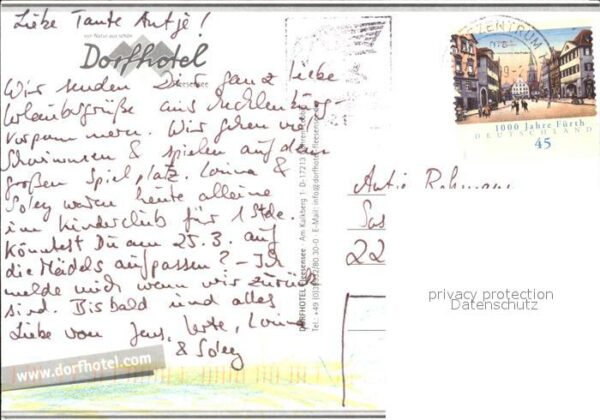 Liebe Tante Antje!
von Natur aus schön
Dorfhotel
Fleesensee
Wir senden Dir ganz liebe
Urlaubsgrüße aus Mecklenburg-
Vorpommern. Wir gehen viel
Schwimmen & spielen auf dem
großen Spielplatz. Lorina &
Soley waren heute alleine
im Kinderclub für 1 Stde.
Könntest Du am 25.3. auf
die Mädels aufpassen? - Ich
melde mich wenn wir zurück
sind. Bis bald und alles
Liebe von Jens, Lorina
& Soley
www.dorfhotel.com
DORFHOTEL Fleesensee Am Kalkberg 1 D-17213
Tel.: +49 (0)39932/80 30-0 E-Mail: info@dorfhotel-fleesensee.de
ZENTRUM
1000 Jahre Fürth
DEUTSCHLAND
45
22
privacy protection
Datenschutz